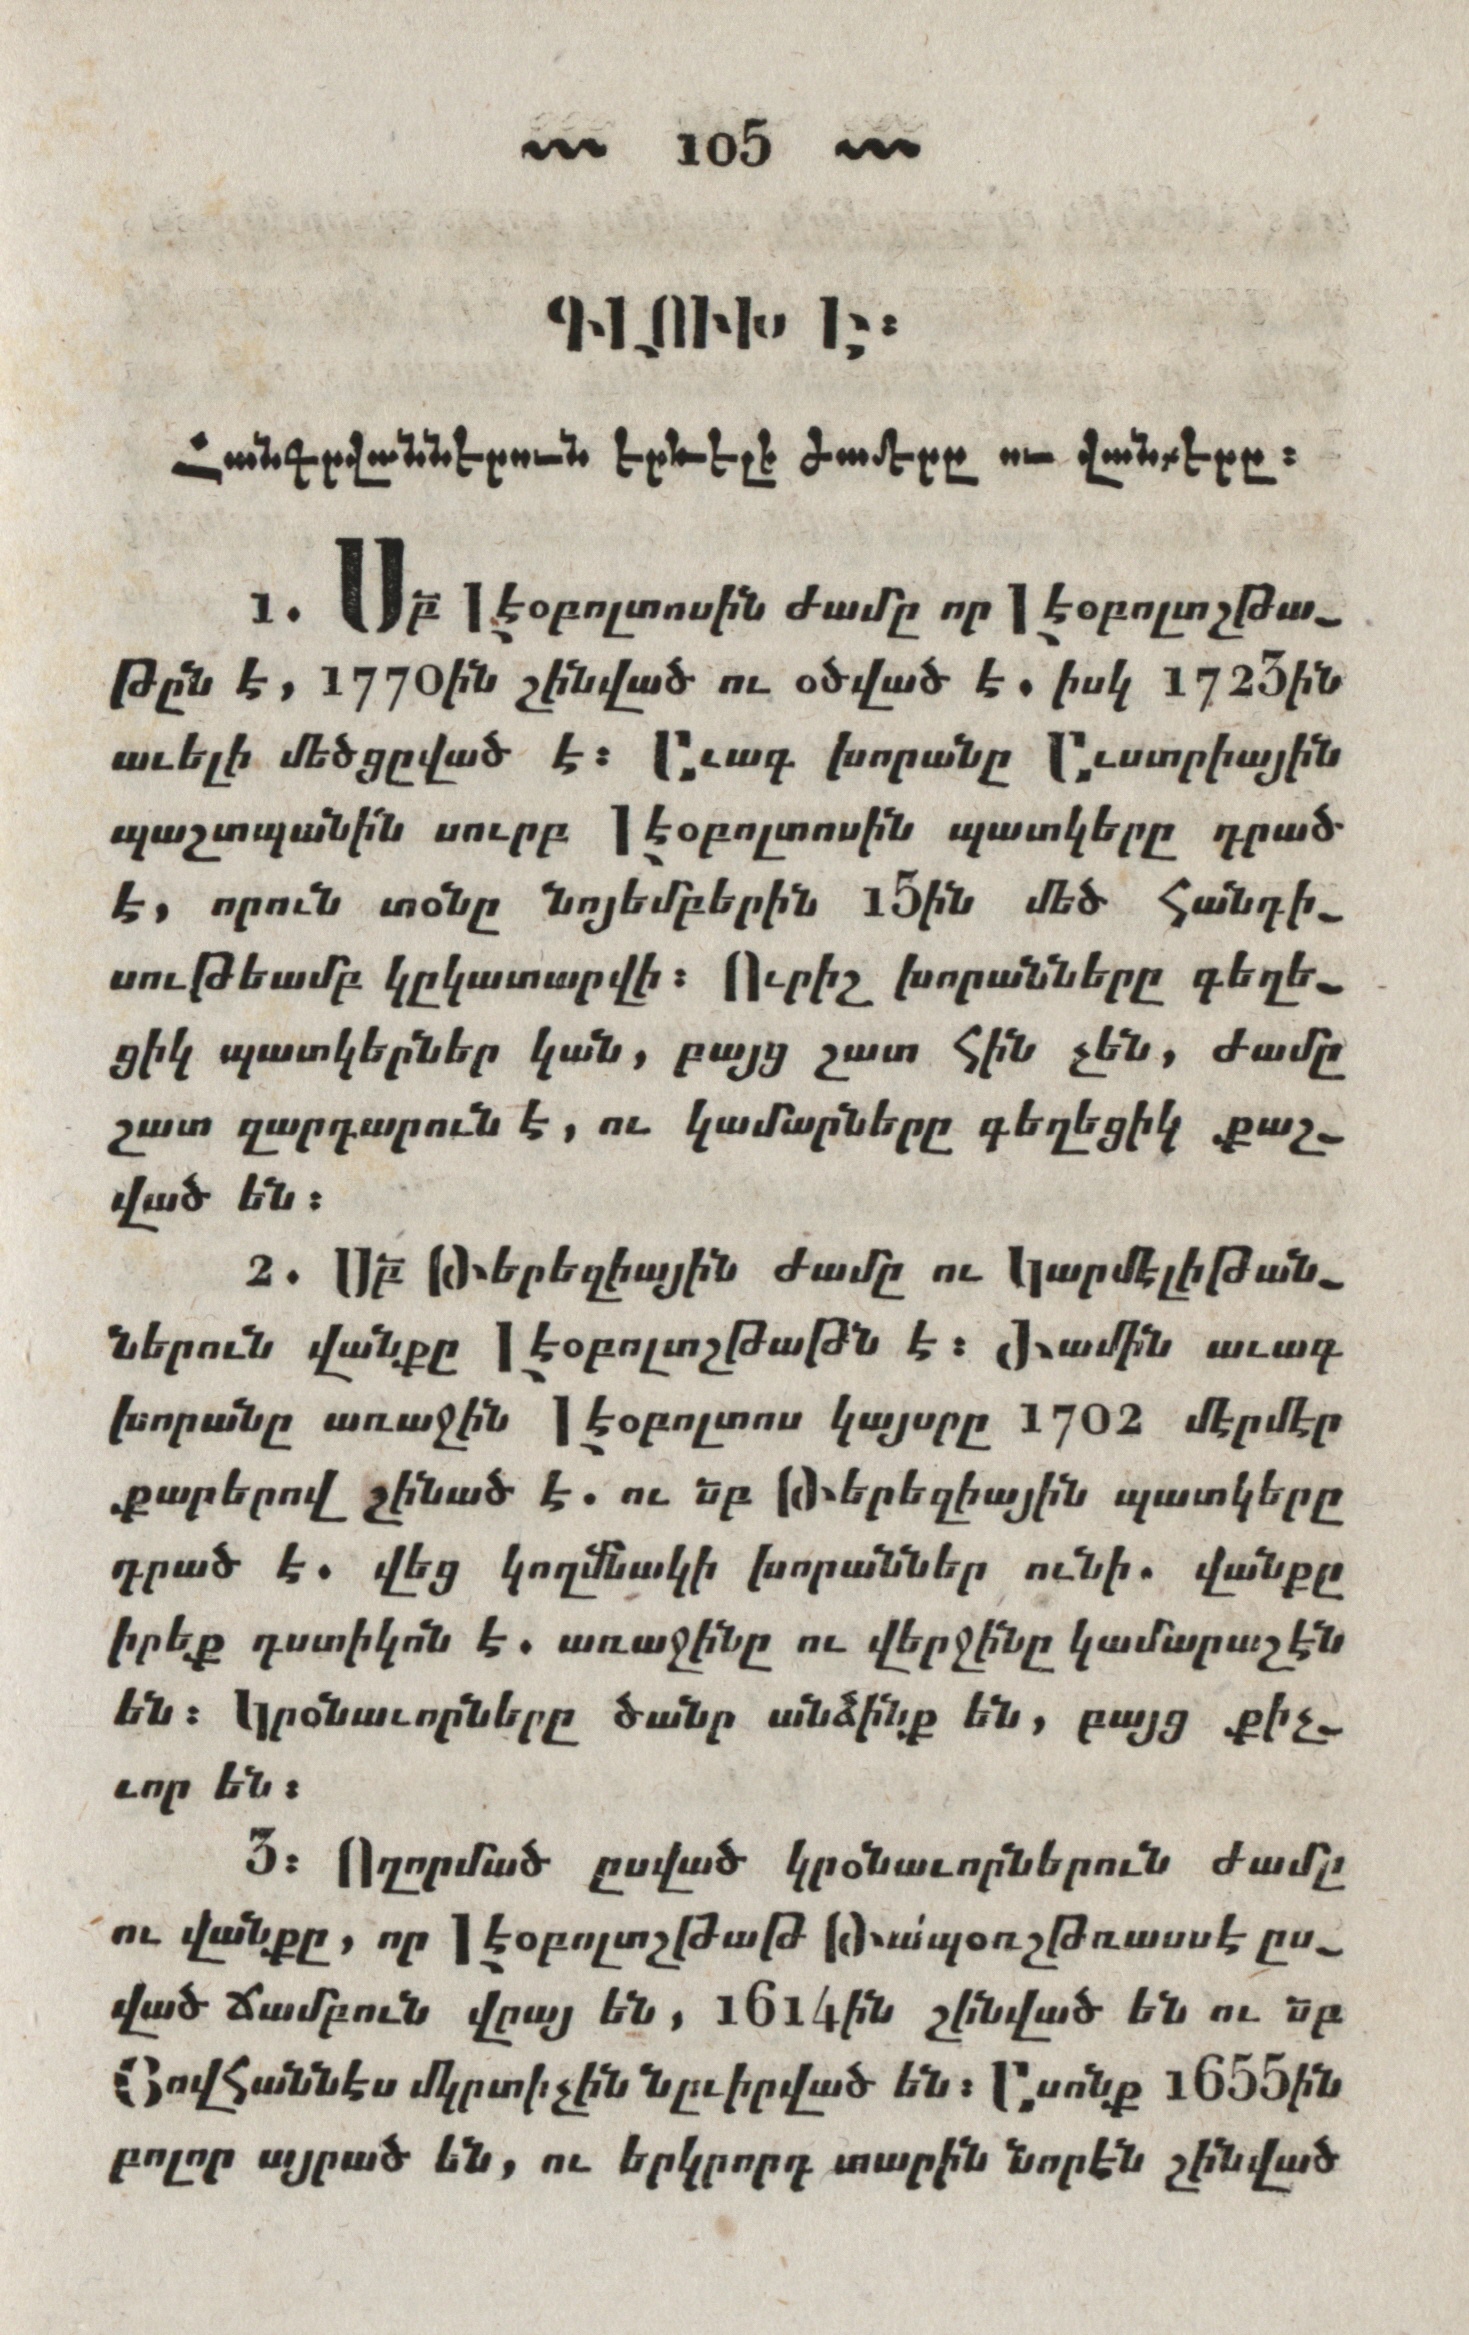 105
ԳԼՈՒԽ Է։
Հանգրվաններուն էրկելի ժամերը ու վանքերը։
1. Սբ Լէօբոլտոսին ժամը որ Լէօբոլտշթա֊
թըն է, 1770ին շինված ու օծված է. իսկ 1723ին
աւելի մեծցըված է։ Աւագ խորանը Աւստրիային
պաշտպանին սուրբ Լէօբոլտոսին պատկերը դրած
է, որուն տօնը նոյեմբերին 15ին մեծ հանդի֊
սութեամբ կըկատարվի։ Ուրիշ խորանները գեղե֊
ցիկ պատկերներ կան, բայց շատ հին չեն, ժամը
շատ զարդարուն է, ու կամարները գեղեցիկ քաշ֊
ված են։
2. Սբ Թերեզիային ժամը ու Կարմէլիթան֊
ներուն վանքը Լէօբոլտշթաթն է։ Ժամին աւագ
խորանը առաջին Լէօբոլտոս կայսրը 1702 մէրմէր
քարերով շինած է. ու սբ Թերեզիային պատկերը
դրած է. վեց կողմնակի խորաններ ունի. վանքը
իրեք դստիկոն է. առաջինը ու վերջինը կամարաշէն
են։ Կրօնաւորները ծանր անձինք են, բայց քիչ֊
ւոր են։
3։ Ողորմած ըսված կրօնաւորներուն ժամը
ու վանքը, որ Լէօբոլտշթաթ Թապօռշթռասսէ ըս֊
ված ճամբուն վրայ են, 1614ին շինված են ու սբ
Յովհաննէս մկրտիչին նըւիրված են։ Ասոնք 1655ին
բոլոր այրած են, ու երկրորդ տարին նորէն շինված